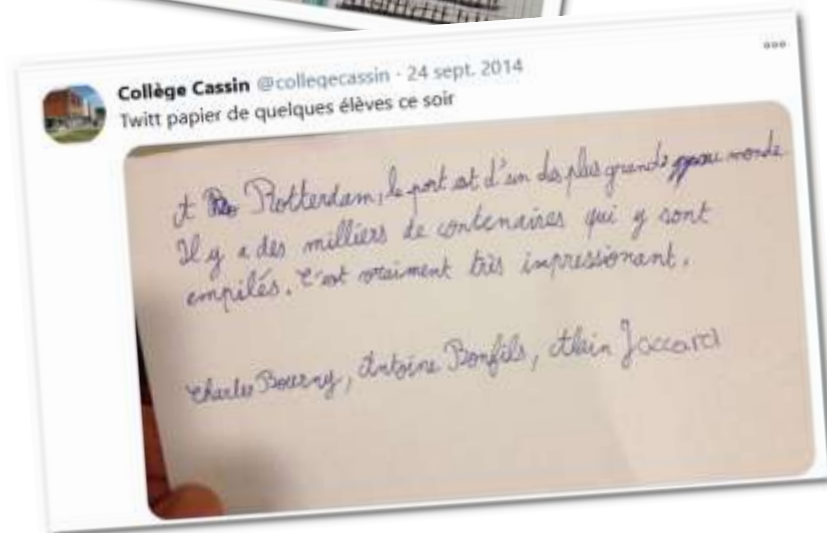 Collège Cassin @collegecassin · 24 sept. 2014
Twitt papier de quelques élèves ce soir
A Rotterdam, le port est d'un des plus grands au monde
Il y a des milliers de contenaires qui y sont
empilés. C'est vraiment très impressionant.
Charles Bourny, Antoine Bonfils, Alain Jaccard